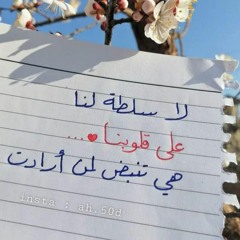 لا سلطة لنا
على قلوبنا ♥...
هي تنبض لمن أرادت
insta : ah.50d